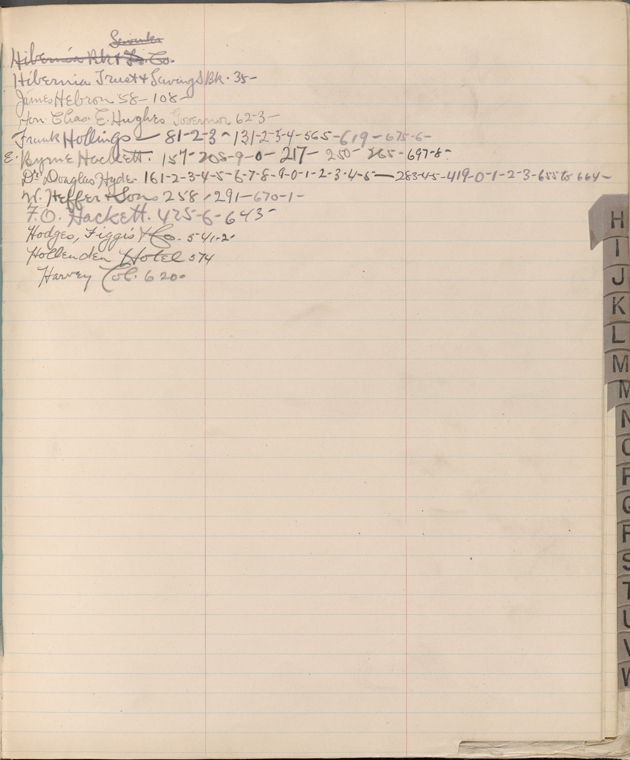 Savings
Hibernia Bk & Tr. Co.
Hibernia Trust & Savings Bk. 35-
James Hebron 58- 108-
Hon. Chas. E. Hughes Governor 62-3-
Frank Hollings - 81-2-3-131-2-3-4-565-619-675-6-
E. Byrne Hackett. 157-205-9-0-217- 250- 265-697-8-
Dr Douglas Hyde. 161-2-3-4-5-6-7-8-9-0-1-2-3-4-5-283-4-5-419-0-1-2-3-655-6-664-
W. Heffer & Sons 258-291-670-1-
F.O. Hackett. 425-6-643-
Hodges, Figgis & Co. 541-2-
Hollenden Hotel 574
Harvey Col. 620-
H
I
J
K
L
M
M
N
O
P
Q
R
S
T
U
V
W